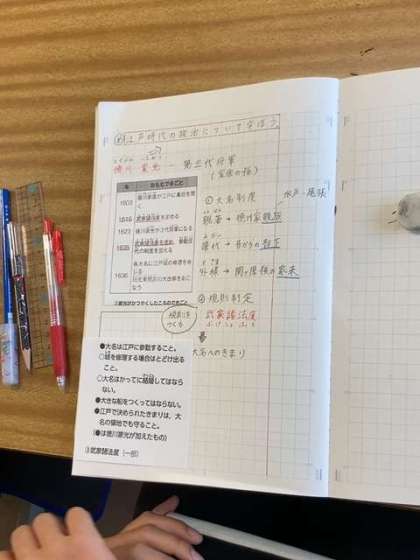 め 江戸時代の政治について学ぼう。
とくがわ いえみつ
徳川 家光 — 第三代将軍
(家康の孫)
年 おもなできごと
1603 徳川家康が江戸に幕府を開く
1615 武家諸法度を定める
1623 徳川家光が3代将軍になる
1635 武家諸法度を改め、参勤交代の制度を加える
1636
① 大名制度
水戸・尾張
親藩→徳川家親せき
譜代→昔からの家臣
外様→関ヶ原後の家来
② 規則制定
規則をつくる
武家諸法度
ぶけしょはっと
大名へのきまり
●大名は江戸に参勤すること。
○城を修理する場合はとどけ出ること。
○大名はかってに結婚してはならない。
●大きな船をつくってはならない。
●江戸で決められたきまりは、大名の領地でも守ること。
(●は徳川家光が加えたもの)
③武家諸法度(一部)